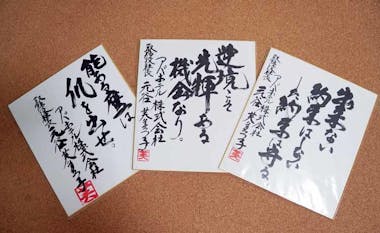 能ある鷹は
爪を出せ。
アパホテル株式会社
取締役社長 元谷芙美子
逆境こそ
光輝ある
機会なり。
アパホテル株式会社
取締役社長 元谷芙美子
出来ない
約束はしない
した約束は守る
アパホテル株式会社
取締役社長 元谷芙美子